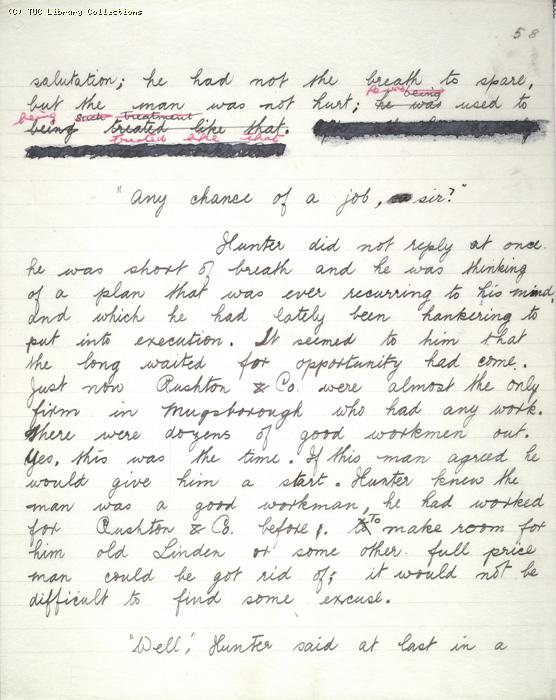 (C) TUC Library Collections
58
salutation; he had not the breath to spare,
he was being
but the man was not hurt; he was used to
being such treatment
being treated like that.
treated like that
"Any chance of a job, sir?"
Hunter did not reply at once
he was short of breath and he was thinking
of a plan that was ever recurring to his mind,
and which he had lately been hankering to
put into execution. It seemed to him that
the long waited for opportunity had come.
Just now Rushton & Co. were almost the only
firm in Mugsborough who had any work.
There were dozens of good workmen out.
Yes, this was the time. If this man agreed he
would give him a start. Hunter knew the
man was a good workman, he had worked
for Rushton & Co. before. To make room for
him old Linden or some other full price
man could be got rid of; it would not be
difficult to find some excuse.
"Well," Hunter said at last in a